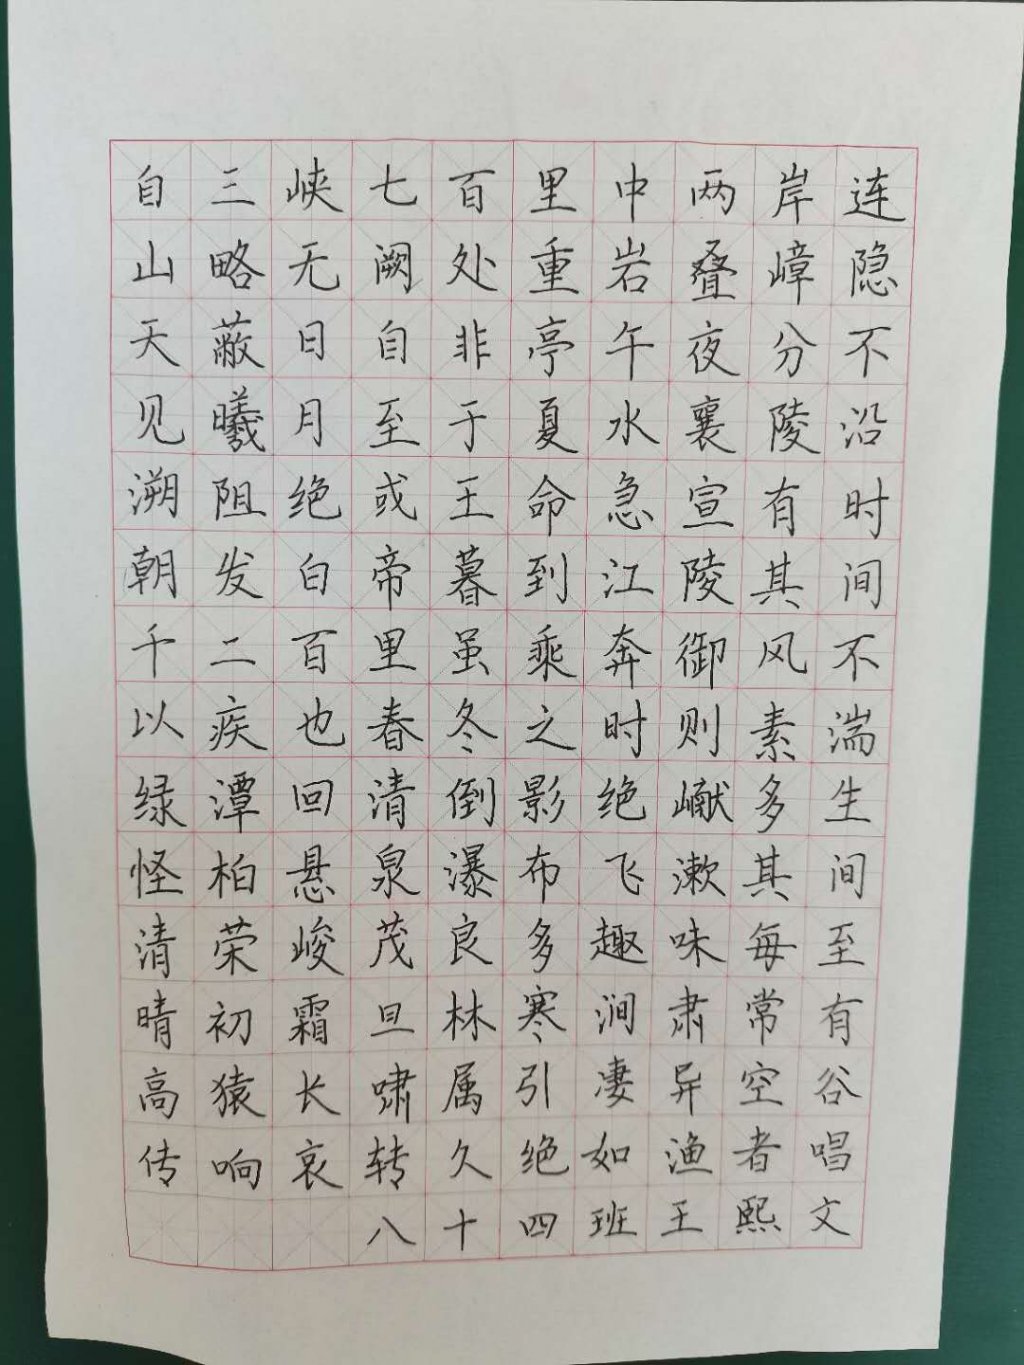 自三峡七百里中两岸连
山略无阙处重岩叠嶂隐
天蔽日自非亭午夜分不
见曦月至于夏水襄陵沿
溯阻绝或王命急宣有时
朝发白帝暮到江陵其间
千二百里虽乘奔御风不
以疾也春冬之时则素湍
绿潭回清倒影绝𪩘多生
怪柏悬泉瀑布飞漱其间
清荣峻茂良多趣味每至
晴初霜旦林寒涧肃常有
高猿长啸属引凄异空谷
传响哀转久绝如渔者唱
八十四班王熙文